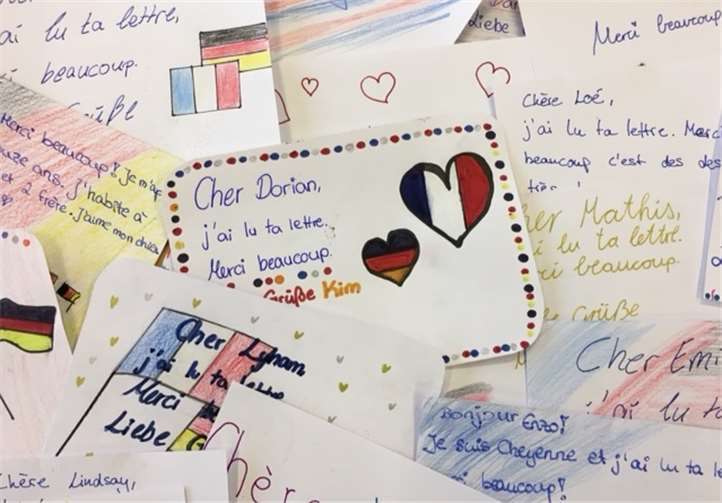 ai lu ta lettre,
beaucoup.
Grüße
Liebe
Merci beaucoup
Merci beaucoup! Je m'ap
ouze ans. j'habite à
et 2 frère. J'aime mon chien
Cher Dorian,
j'ai lu ta lettre.
Merci beaucoup.
Grüße Kim
Chère Loé,
j'ai lu ta lettre. Merc
beaucoup c'est des des
tiè
her Mathis,
i lu ta lettre.
ci beaucoup.
Grüße
Cher Lynam,
j'ai lu ta lettre
Merci
Liebe G
Cher Emi
j'ai lu ta
Bonjour Enzo!
Je suis Cheyenne et j'ai lu ta le
ci beaucoup!
Chère
Chère Lindsay,